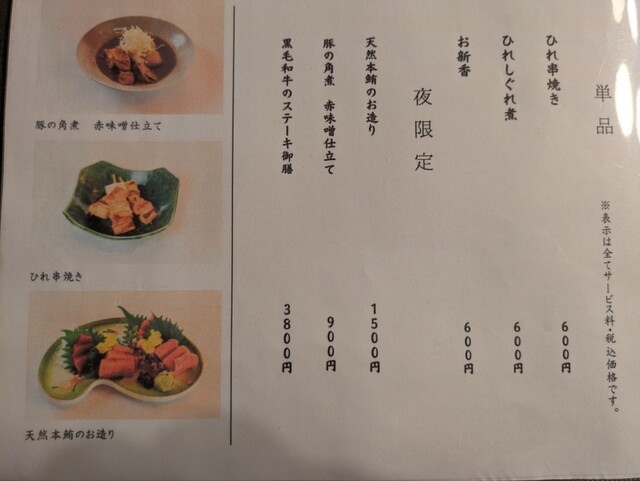 単品
※表示は全てサービス料・税込価格です。
ひれ串焼き 600円
ひれしぐれ煮 600円
お新香 600円
夜限定
天然本鮪のお造り 1500円
豚の角煮 赤味噌仕立て 900円
黒毛和牛のステーキ御膳 3800円
豚の角煮 赤味噌仕立て
ひれ串焼き
天然本鮪のお造り